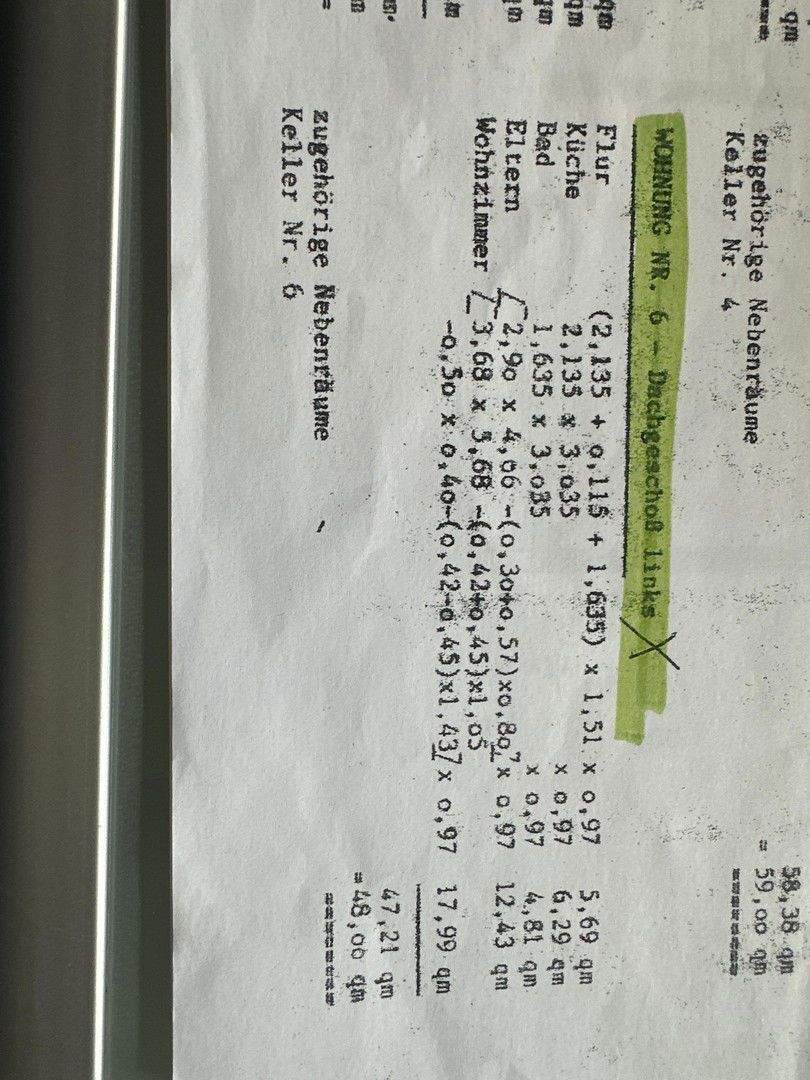 qm
58,38 qm
= 59,oo qm
=======
zugehörige Nebenräume
Keller Nr. 4
WOHNUNG NR. 6 - Dachgeschoß links X
Flur (2,135 + o,115 + 1,635) x 1,51 x o,97 5,69 qm
Küche 2,135 x 3,o35 x o,97 6,29 qm
Bad 1,635 x 3,o35 x o,97 4,81 qm
Eltern [2,9o x 4,66 -(o,3o+o,57)xo,8o7 x o,97 12,43 qm
Wohnzimmer [3,68 x 5,68 -(o,42+o,45)x1,o5
-o,5o x o,4o-(o,42+o,45)x1,437 x o,97 17,99 qm
47,21 qm
=48,oo qm
========
zugehörige Nebenräume
Keller Nr. 6